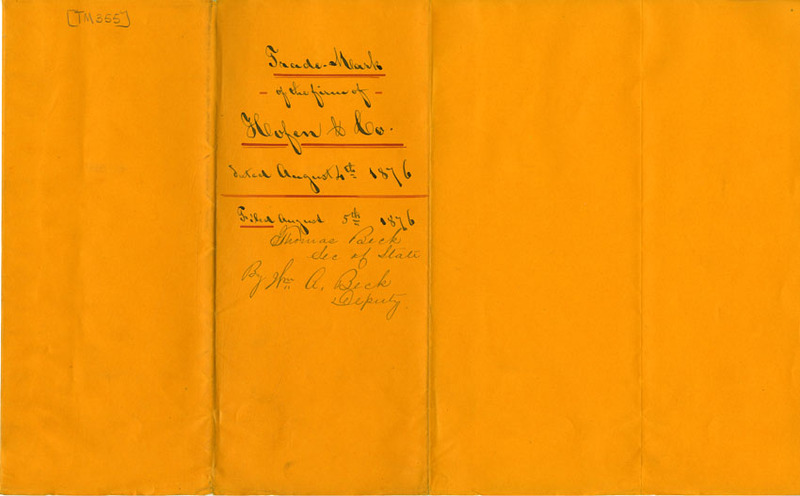 [TM355]
Trade-Mark
- of the firm of -
Hofen & Co.
dated August 4th 1876
Filed August 5th 1876
Thomas Beck
Sec of State
By Wm A. Beck
Deputy